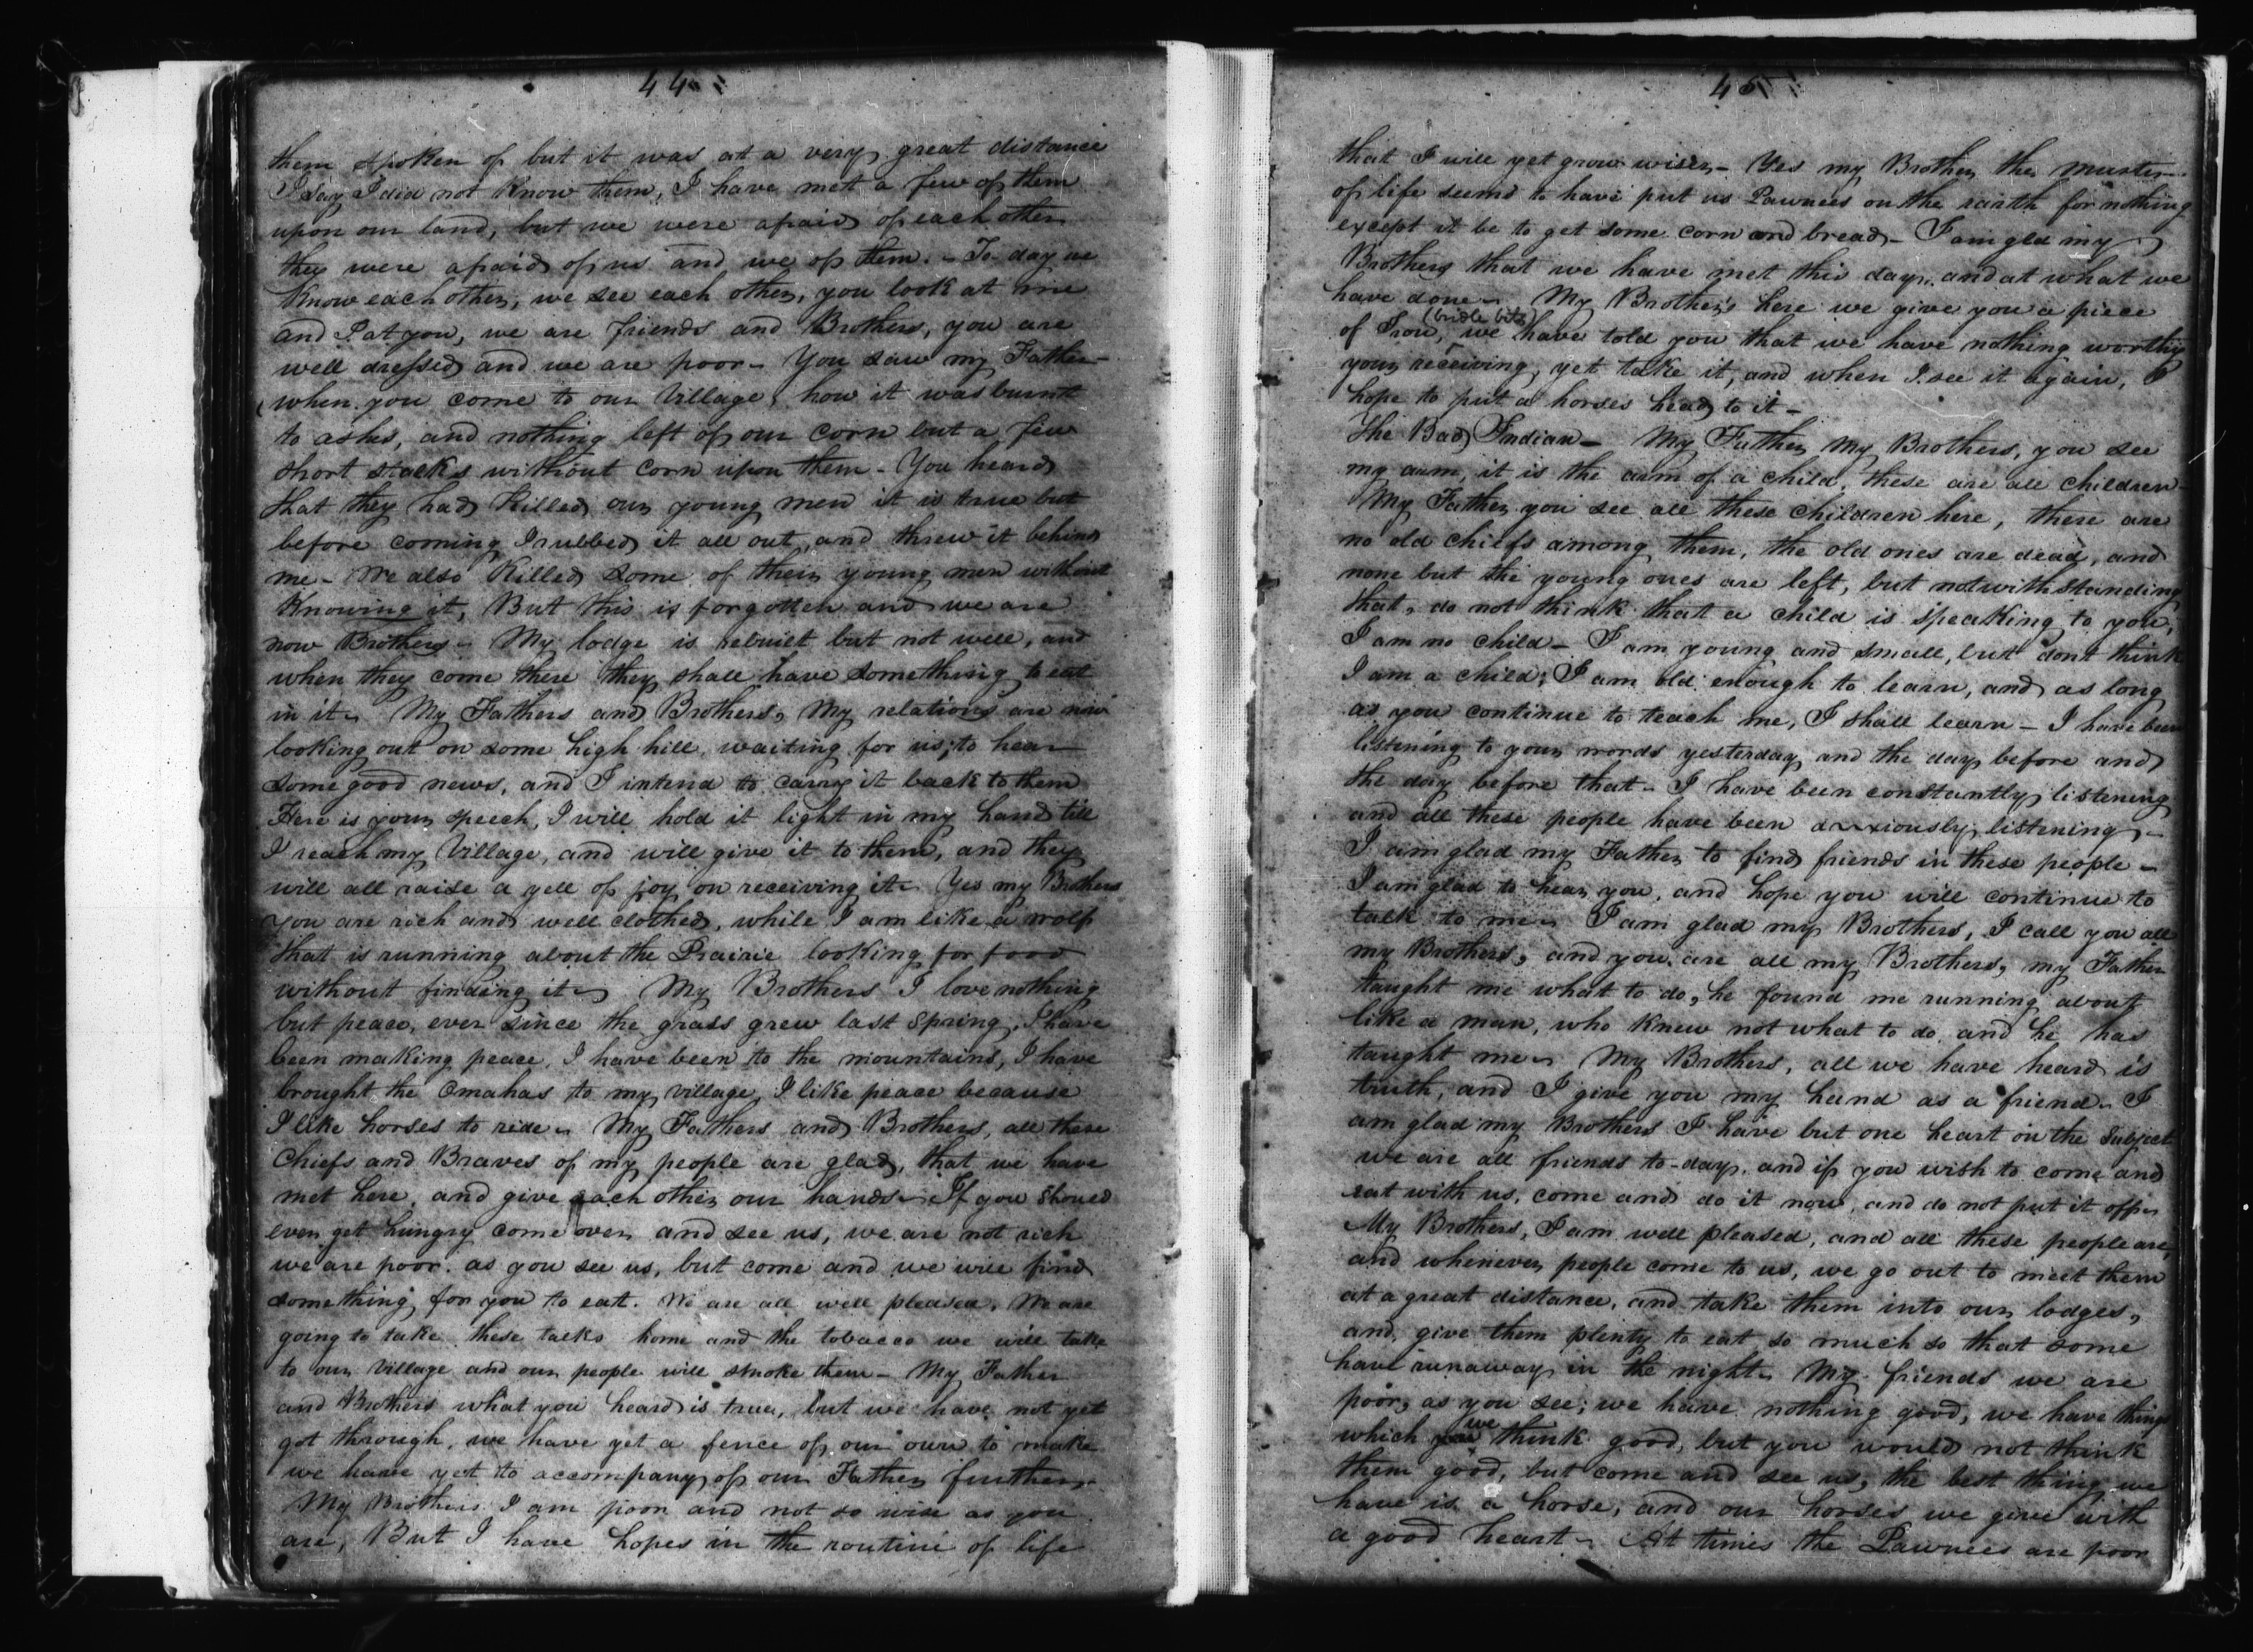 44
them spoken of but it was at a very great distance
I say I did not know them, I have met a few of them
upon our land, but we were afraid of each other
they were afraid of us and we of them. - To-day we
know each other, we see each other, you look at me
and I at you, we are friends and Brothers, you are
well dressed and we are poor - You saw my Father
when you come to our Village, how it was burnt
to ashes, and nothing left of our corn but a few
short stacks without corn upon them - You heard
that they had killed our young men it is true but
before coming I rubbed it all out, and threw it behind
me - We also killed some of their young men without
Knowing it, But this is forgotten and we are
now Brothers - My lodge is rebuilt but not well, and
when they come there they shall have something to eat
in it - My Fathers and Brothers, My relations are now
looking out on some high hill, waiting for us; to hear
some good news, and I intend to carry it back to them
Here is your speech, I will hold it light in my hand till
I reach my Village, and will give it to them, and they
will all raise a yell of joy on receiving it - Yes my Brothers
you are rich and well clothed, while I am like a wolf
that is running about the Prairie looking for food
without finding it - My Brothers I love nothing
but peace, ever since the grass grew last spring, I have
been making peace, I have been to the mountains, I have
brought the Omahas to my village, I like peace because
I like horses to ride - My Fathers and Brothers, all these
Chiefs and Braves of my people are glad, that we have
met here, and give each other our hands - If you should
ever get hungry come over and see us, we are not rich
we are poor. as you see us, but come and we will find
something for you to eat. We are all well pleased, We are
going to take these talks home and the tobacco we will take
to our Village and our people will smoke them - My Father
and Brothers what you heard is true, but we have not yet
got through, we have yet a fence of our own to make
we have yet to accompany of our Father further -
My Brothers I am poor and not so wise as you
are, But I have hopes in the routine of life
45
that I will yet grow wiser - Yes my Brother the master
of life seems to have put us Pawnees on the earth for nothing
except it be to get some corn and bread - I am glad my
Brothers that we have met this day. and at what we
have done - My Brothers here we give you a piece
of Iron, (bridle bits) we have told you that we have nothing worthy
your receiving, yet take it, and when I see it again, I
hope to put a horses head to it -
The Bad Indian - My Father my Brothers, you see
my arm, it is the arm of a child, these are all children -
My Father you see all these children here, there are
no old chiefs among them, the old ones are dead, and
none but the young ones are left, but notwithstanding
that, do not think that a child is speaking to you,
I am no child - I am young and small, but dont think
I am a child; I am old enough to learn, and as long
as you continue to teach me, I shall learn - I have been
listening to your words yesterday and the day before and
the day before that - I have been constantly listening
and all these people have been anxiously listening -
I am glad my Father to find friends in these people -
I am glad to hear you, and hope you will continue to
talk to me - I am glad my Brothers, I call you all
my Brothers, and you are all my Brothers, my Father
taught me what to do, he found me running about
like a man, who knew not what to do and he has
taught me - My Brothers, all we have heard is
truth, and I give you my hand as a friend - I
am glad my Brothers I have but one heart on the subject
we are all friends to-day. and if you wish to come and
eat with us, come and do it now, and do not put it off -
My Brothers, I am well pleased, and all these people are,
and whenever people come to us, we go out to meet them
at a great distance, and take them into our lodges,
and give them plenty to eat so much so that some
have runaway in the night - My friends we are
poor, as you see; we have nothing good, we have things
which we think good, but you would not think
them good, but come and see us, the best thing we
have is a horse, and our horses we give with
a good heart - At times the Pawnees are poor